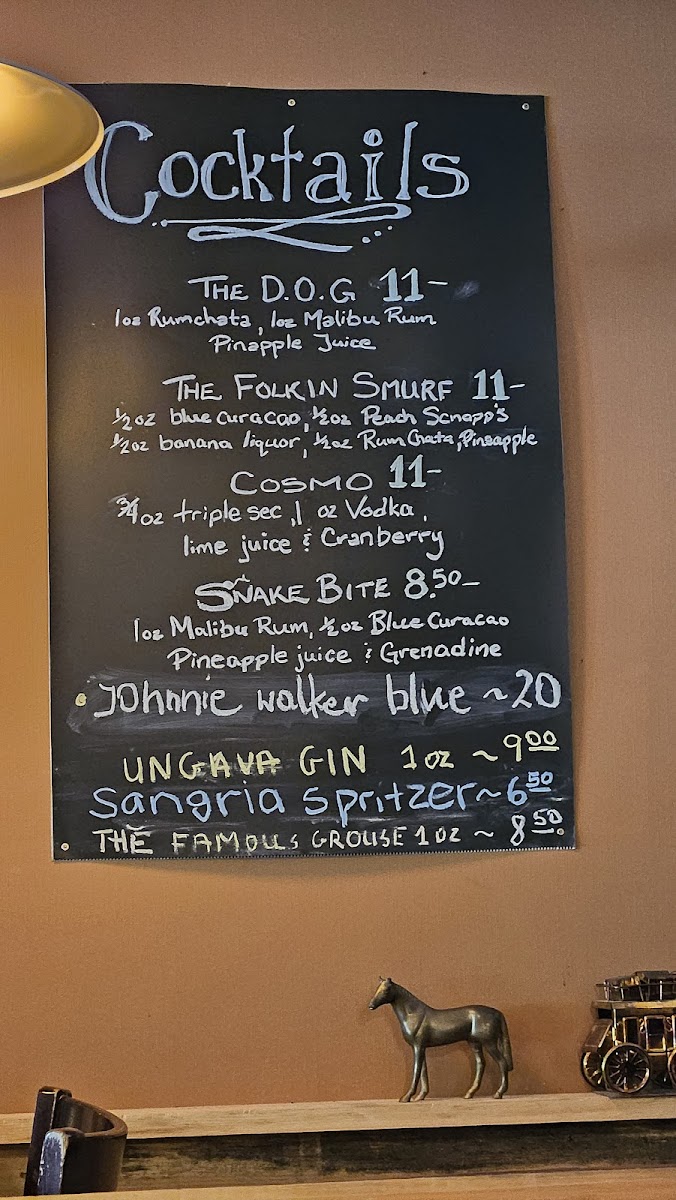 Cocktails
THE D.O.G 11-
1oz Rumchata, 1oz Malibu Rum
Pinapple Juice
THE FOLKIN SMURF 11-
1/2 oz blue curacao, 1/2 oz Peach Scnapp's
1/2 oz banana liquor, 1/2 oz RumChata, Pineapple
COSMO 11-
3/4 oz triple sec, 1 oz Vodka,
lime juice & Cranberry
SNAKE BITE 8.50-
1oz Malibu Rum, 1/2 oz Blue Curacao
Pineapple juice & Grenadine
Johnnie walker blue ~20
UNGAVA GIN 1oz ~ 9.00
Sangria Spritzer ~ 6.50
THE FAMOUS GROUSE 1 oz ~ 8.50